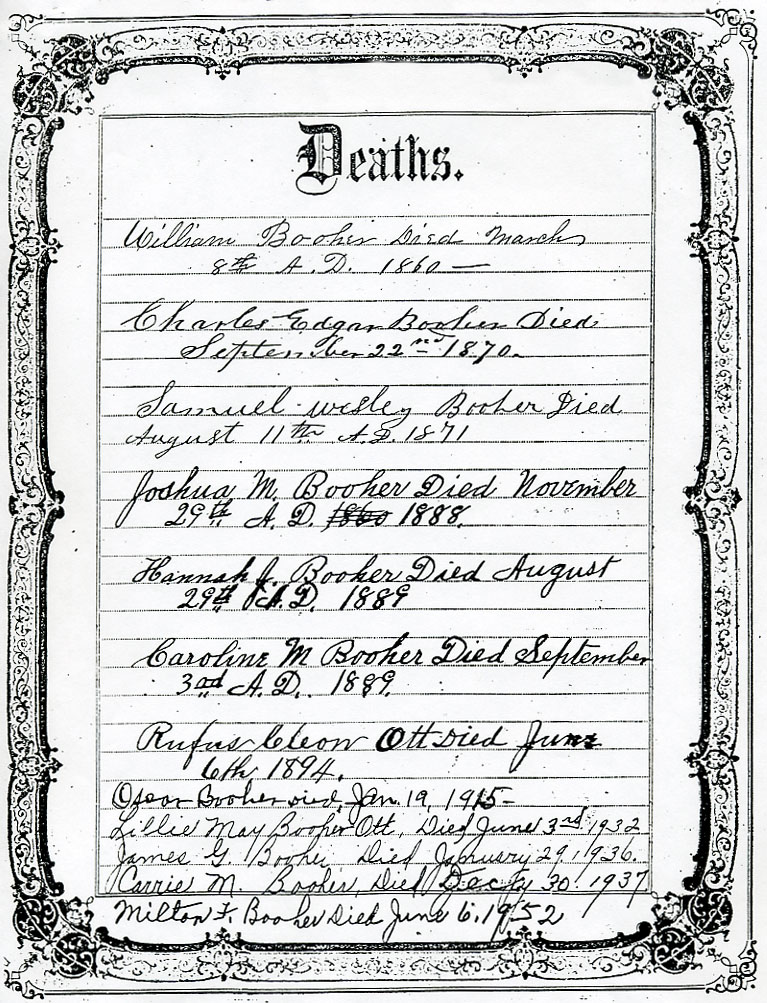 Deaths.
William Booher Died March
8th A.D. 1860 —
Charles Edgar Booher Died
September 22nd 1870.
Samuel Wesley Booher Died
August 11th A.D. 1871
Joshua M. Booher Died November
29th A.D. 1860 1888.
Hannah J. Booher Died August
29th A.D. 1889
Caroline M Booher Died September
3rd A.D. 1889.
Rufus Cleon Ott Died June
6th 1894.
Oscar Booher died, Jan. 19, 1915-
Lillie May Booher Ott, Died June 3rd 1932
James G. Booher Died January 29, 1936.
Carrie M. Booher, Died 30. 1937
Milton F. Booher Died June 6. 1952